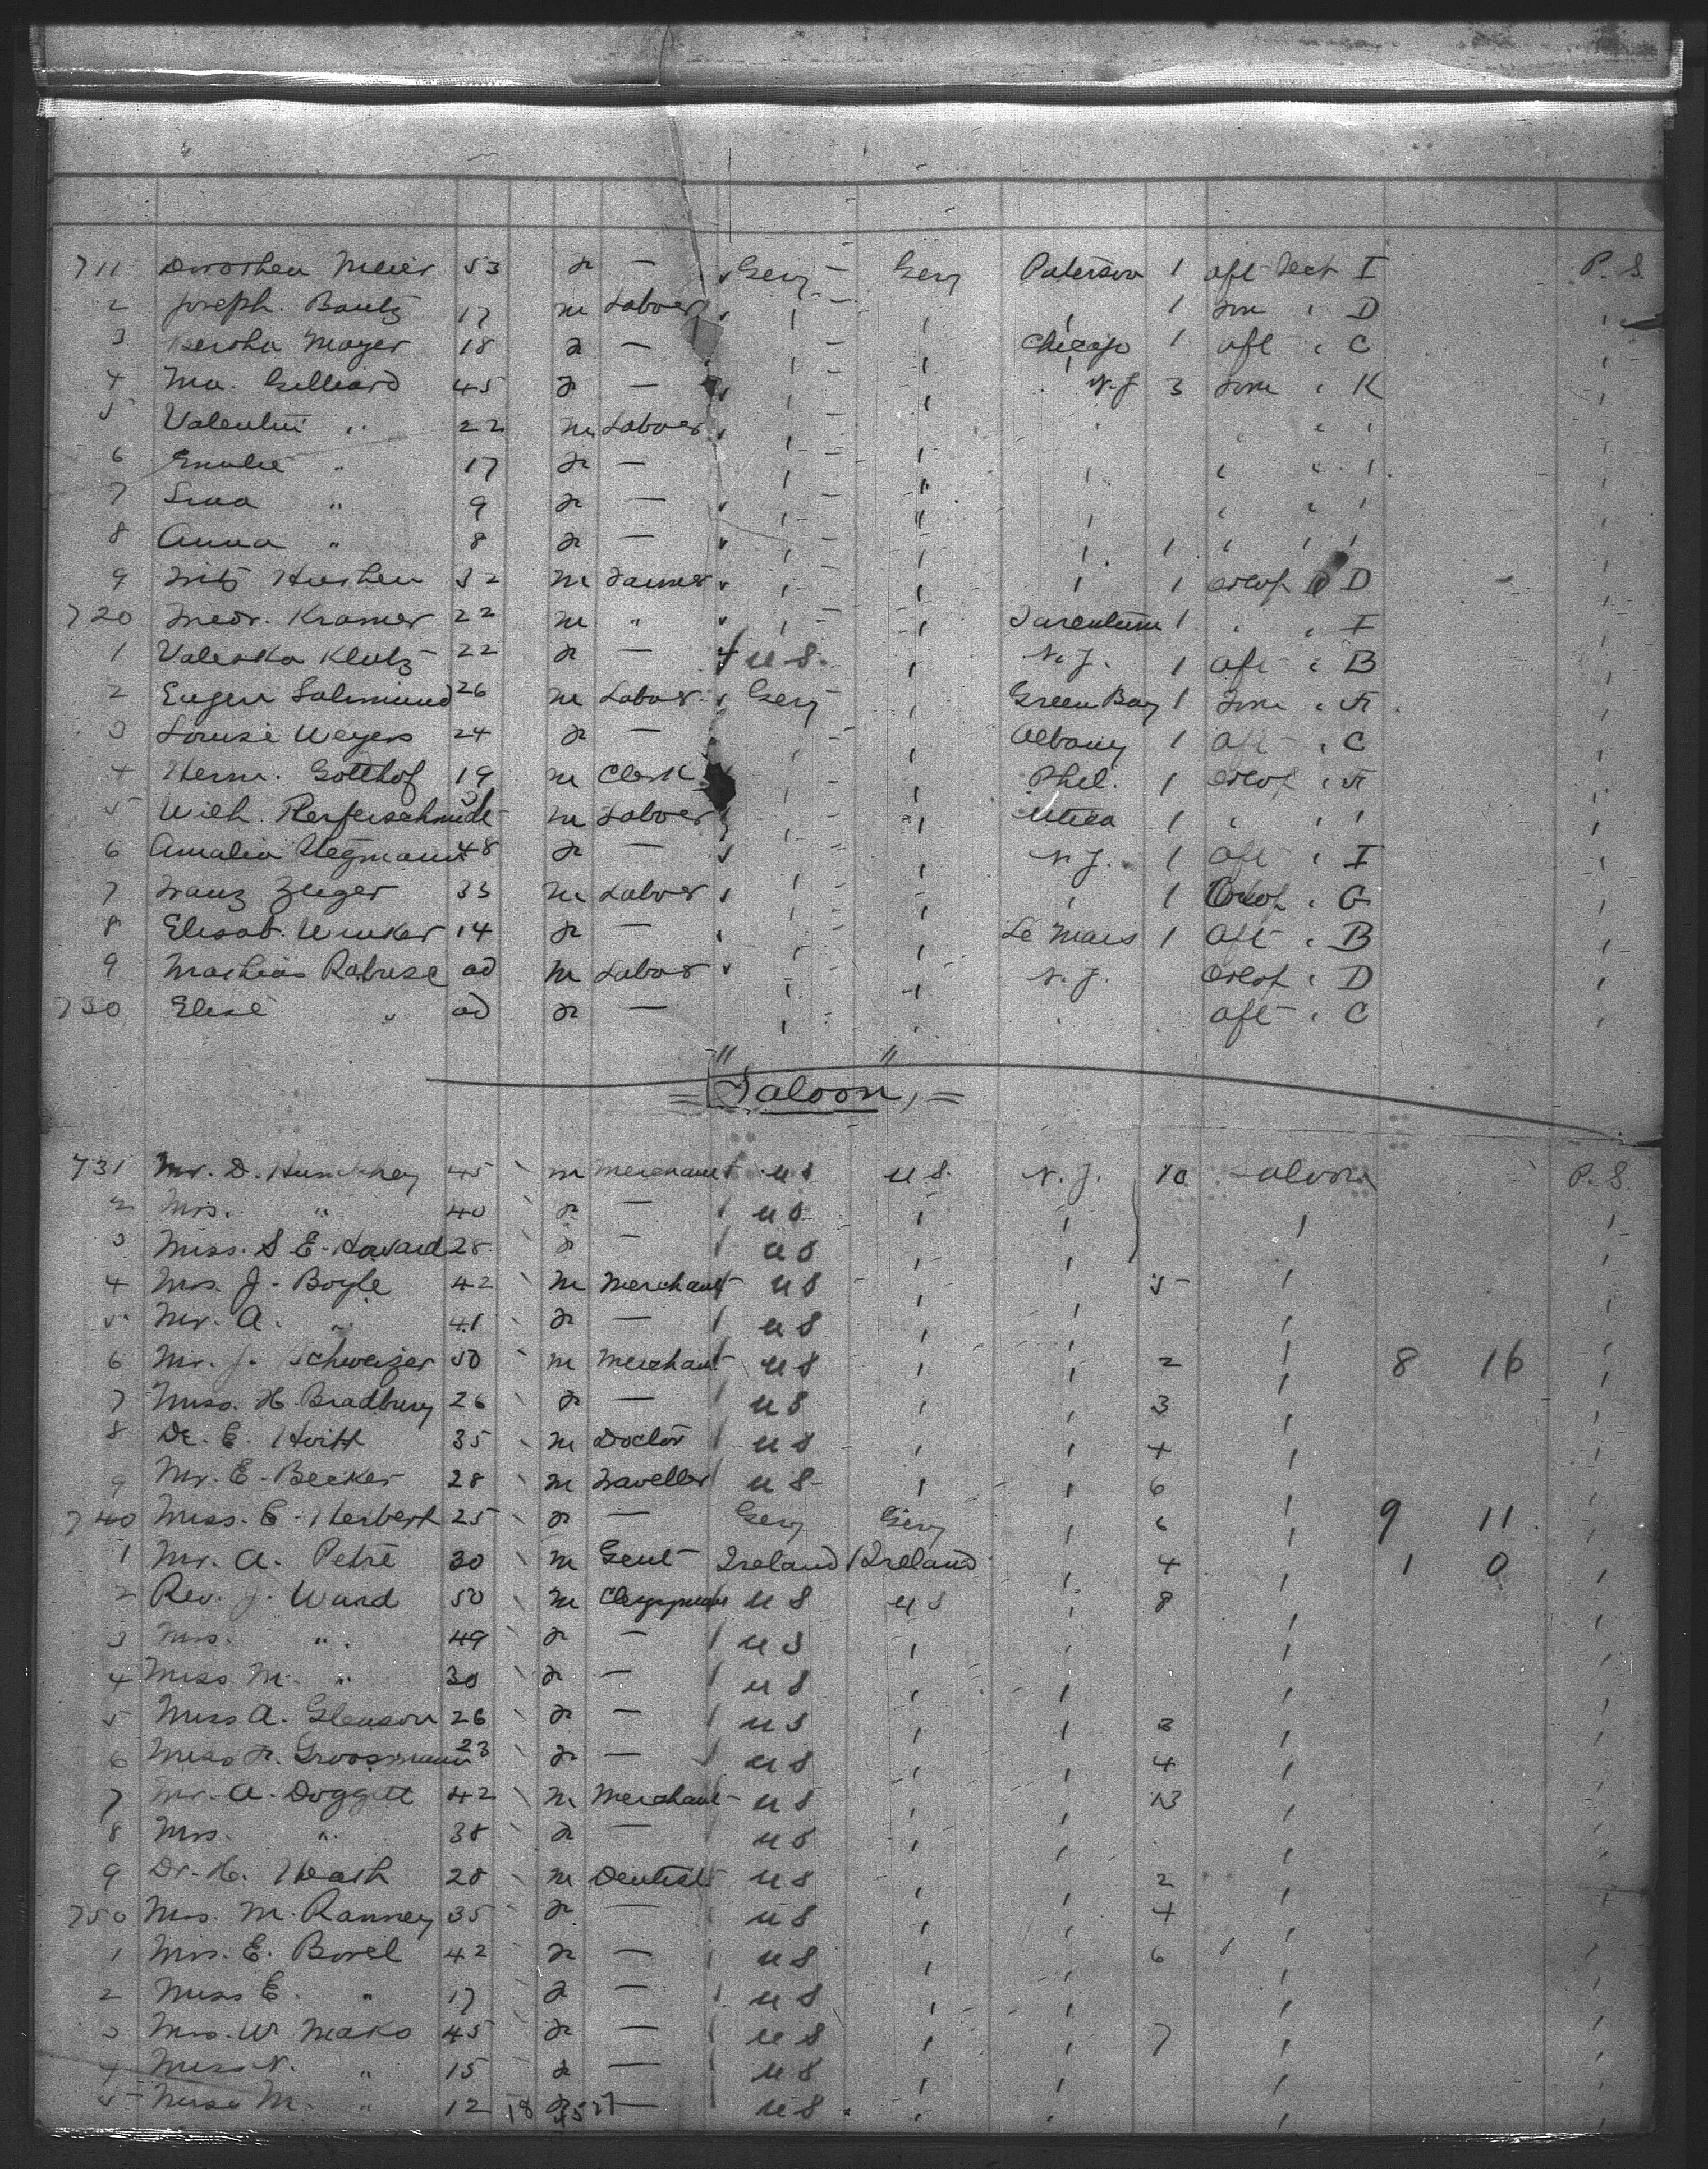 711 Dorothea Meier 53 f — Gery Gery Paterson 1 aft Deck I P. S.
2 Joseph. Bautz 17 m Labor 1 D
3 Bertha Mayer 18 f — Chicago 1 aft " C
4 45 f — N. J 3 " K
5 Valentin " 22 m Labor
6 Emilie " 17 f —
7 Lina " 9 f —
8 Anna " 8 f — 1
9 Fritz 32 m Farmer 1 Orlop D
720 Kramer 22 m " Tarentum 1 " " I
1 Valeska Klutz 22 f — U.S. N. J. 1 aft " B
2 Eugen 26 m Labor Gery Green Bay 1 " A
3 Louise Weyers 24 f — Albany 1 aft " C
4 Herm. Gotthof 19 m Clerk Phil. 1 Orlop " A
5 Wilh. m Labor Utica 1 " " "
6 Amalia Hegmann 48 f — N. J. 1 aft " I
7 Franz Zeeger 33 m Labor " 1 Orlop " G
8 Elisab. Winker 14 f — Le Mars 1 aft " B
9 Mathias Rabuse ad m Labor N. J. Orlop " D
730 Elise " ad f — aft " C
" "
= Saloon, =
731 Mr. D. Humphrey 45 m Merchant U S U S. N. J. 10 Saloon P. S.
2 Mrs. " 40 f — U S
3 Miss. S E. Howard 28 f — U S
4 Mrs. J. Boyle 42 m Merchant U S 5
5 Mr. A. " 41 f — U S
6 Mr. J. Schweizer 50 m Merchant U S 2 8 16
7 Miss. H. Bradbury 26 f — U S 3
8 Dr. E. 35 m Doctor U S 4
9 Mr. E. Becker 28 m Traveller U S 6
740 Miss. E. Herbert 25 f — Gery Gery 6 9 11
1 Mr. A. Petre 30 m Gent Ireland Ireland 4 1 0
2 Rev. J. Ward 50 m Clergyman U S U S 8
3 Mrs. " 49 f — U S
4 Miss M. " 30 f — U S
5 Miss A. Gleason 26 f — U S 3
6 Miss F. Groosmann 23 f — U S 4
7 Mr. A. Doggett 42 m Merchant U S 13
8 Mrs. " 38 f — U S
9 Dr. H. Heath 28 m Dentist U S 2
750 Mrs. M. Ranney 35 f — U S 4
1 Mrs. E. Borel 42 f — U S 6
2 Miss E. " 17 f — U S
3 Mrs. W Mako 45 f — U S 7
4 Miss N. " 15 f — U S
5 Miss M. " 12 18 f — U S